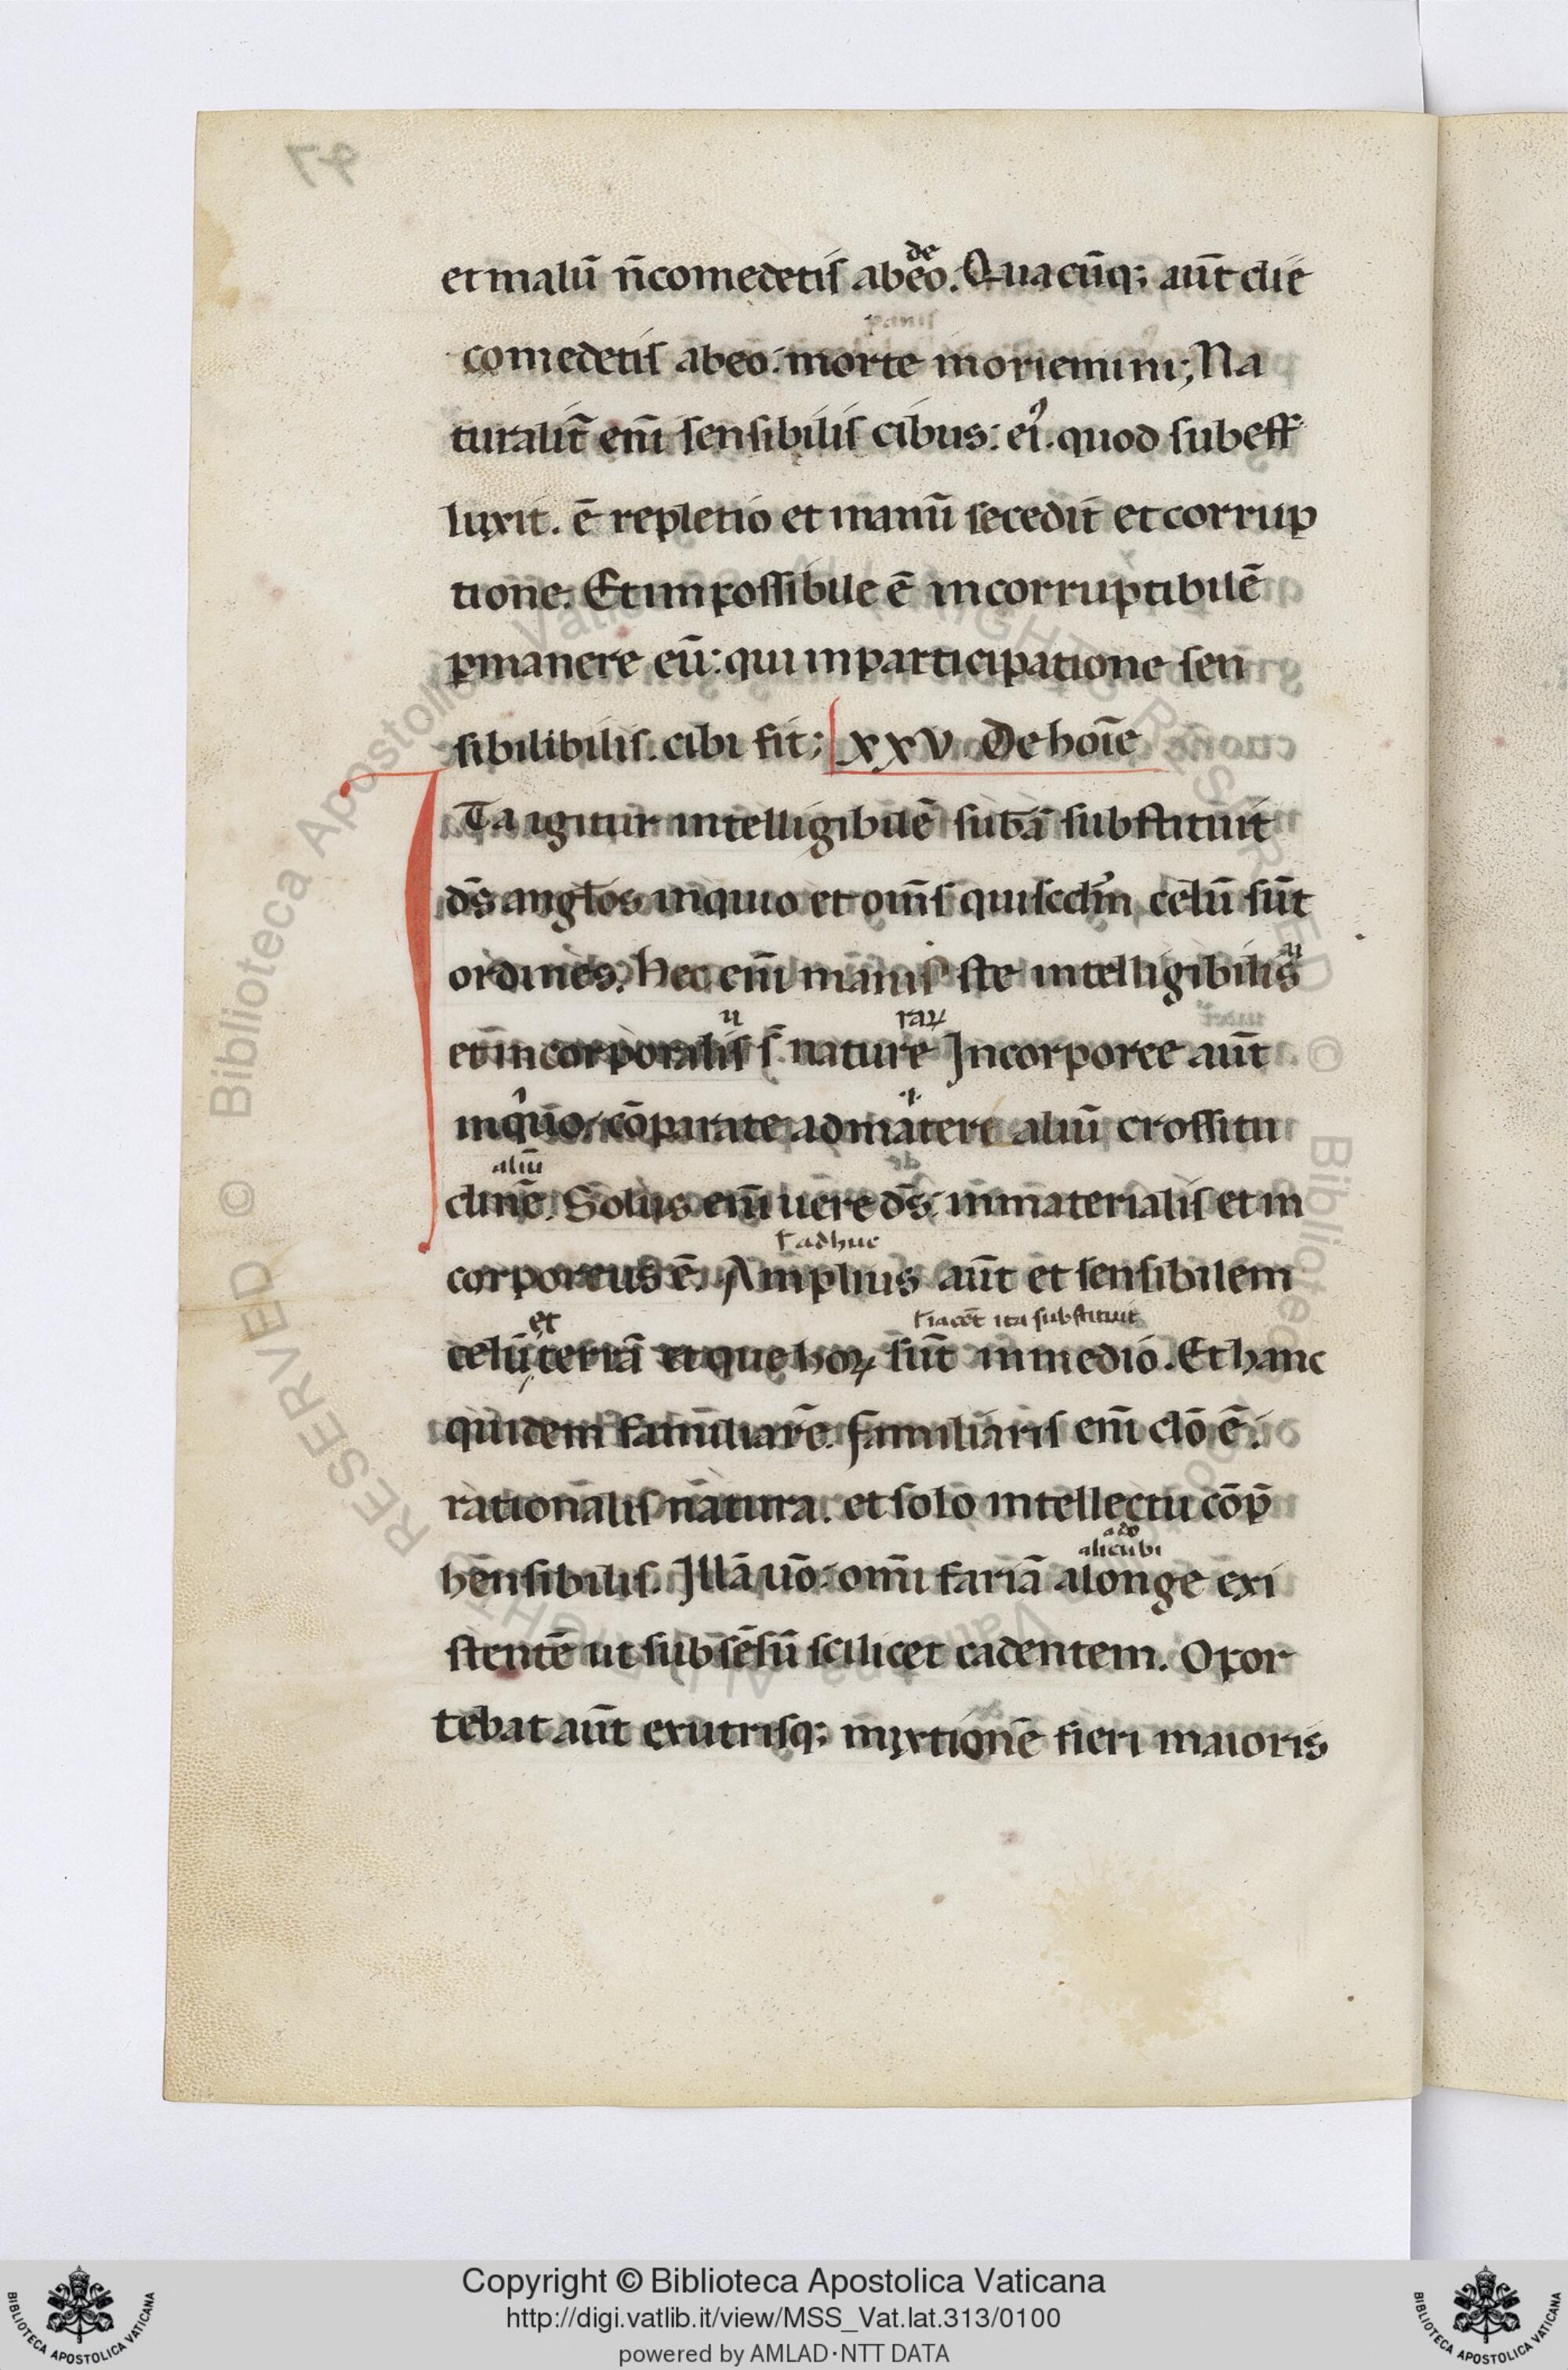 de
et malū n̄ comedetis ab eo. Quacūq; aūt die
comedetis ab eo: morte moriemini; Na
turalit̄ eni̅ sensibilis cibus: ei⁹. quod subeff
luxit. ē repletio et in anū secedit et corrup
tione. Et impossibile ē incorruptibilē
ꝑmanere eū: qui in participatione sen
sibilibilis. cibi fit; xxv. De hoīe
ITa igitur intelligibilē subām substituit
ds̄ anglos inquio et om̄s qui scdm̄ celū sūt
ordines. Hec eni̅ manifeste intelligibilis
u raꝝ
et incorporalis s̄ nature Incorporee aūt
inquio: cōparate ad materi aliū crossitu
aliū
dinē. Solus eni̅ uere ds̄: inmaterialis et in
ł adhuc
corporeus ē. Amplius aūt et sensibilem
et ł iacēt ita substituit
celū terrā et que hoꝝ sūt in medio. Et hanc
quidem familiarē. familiaris eni̅ dō ē:
rationalis natura. et solo intellectu cōp̄
alicubi
hēnsibilis. Illā uō: omi̅ fariā alonge exi
stentē ut sub sēsū scilicet cadentem. Opor
tebat aūt ex utrisq; mixtionē fieri maioris
Biblioteca Apostolica Vaticana
ALL RIGHTS RESERVED ©
Copyright © Biblioteca Apostolica Vaticana
http://digi.vatlib.it/view/MSS_Vat.lat.313/0100
powered by AMLAD·NTT DATA
BIBLIOTECA APOSTOLICA VATICANA
BIBLIOTECA APOSTOLICA VATICANA